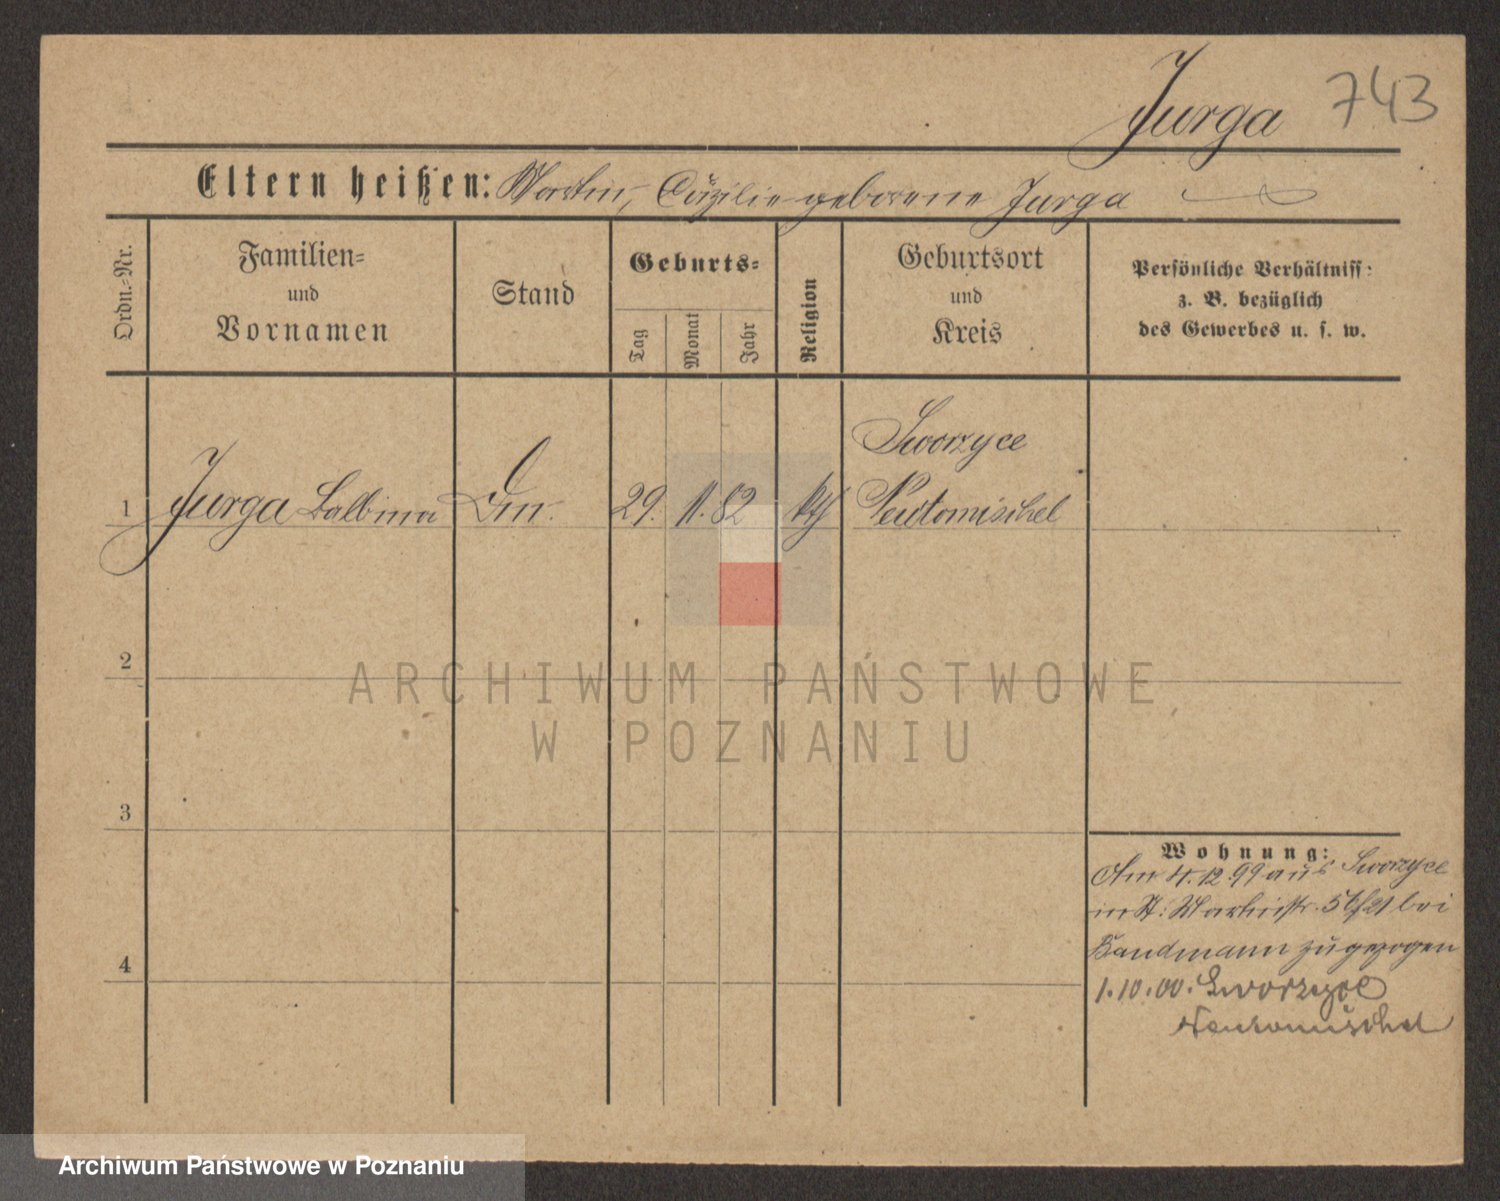 Jurga 743
Eltern heißen: Martin, Cäzilie geborene Jurga
Ordn.-Nr.
Familien-
und
Vornamen
Stand
Geburts-
Tag
Monat
Jahr
Religion
Geburtsort
und
Kreis
Persönliche Verhältniss:
z. B. bezüglich
des Gewerbes u. s. w.
Sworzyce
1 Jurga Balbina 29. 11. 82 kth Neutomischel
2
3
4
Wohnung:
Am 4.12.99 aus Sworzyce
in St: Martinstr. bei
Bandmann zugezogen
1.10.00. Sworzyce
Neutomischel
ARCHIWUM PAŃSTWOWE
W POZNANIU
Archiwum Państwowe w Poznaniu